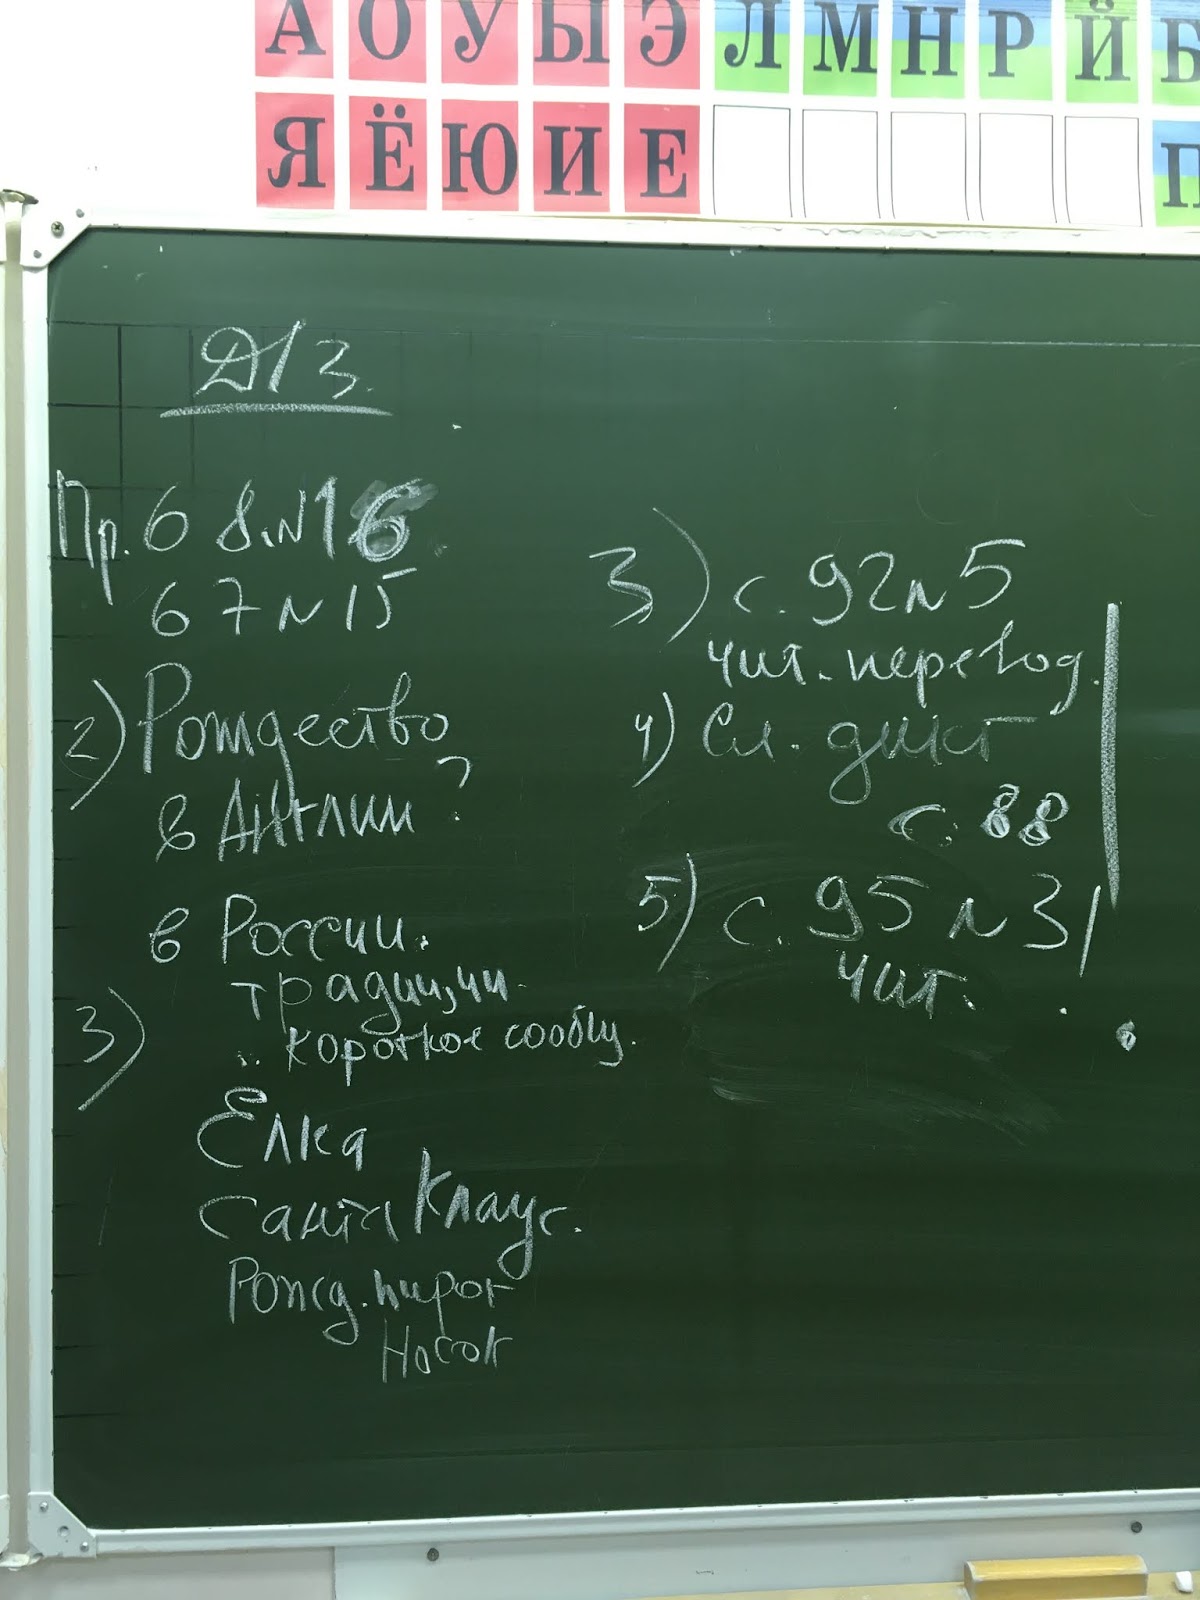 А О У Ы Э Л М Н Р Й Б
Я Ё Ю И Е П
Д/З.
Пр. 68 №16
67 №15
2) Рождество
в Англии?
в России.
традиции.
3) .. короткое сообщ.
Ёлка
Санта Клаус.
Рожд. пирог
Носок
3) с. 92 №5
чит. перевод.
4) Сл. дикт
с. 88
5) с. 95 №31
чит.